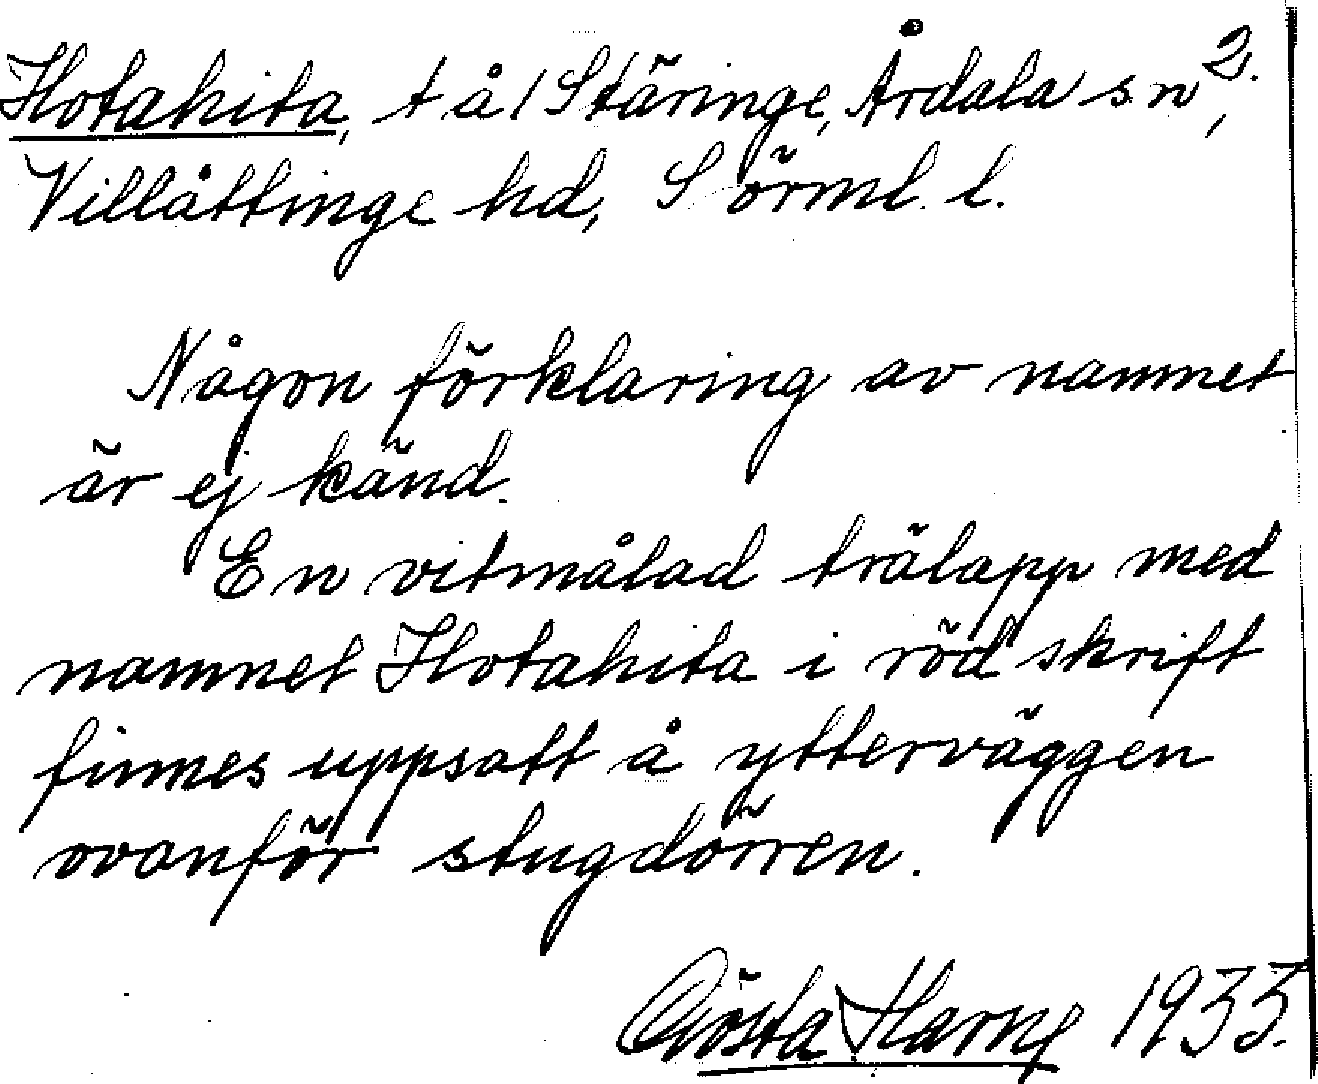 Hotahita, t å / Stäringe, Årdala sn, 2.
Villåttinge hd, Sörml. l.
Någon förklaring av namnet
är ej känd.
En vitmålad trälapp med
namnet Hotahita i röd skrift
finnes uppsatt å ytterväggen
ovanför stugdörren.
Gösta Harne 1933.